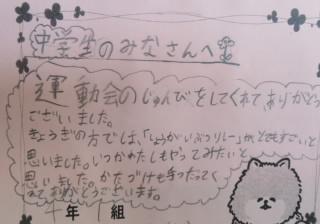 中学生のみなさんへ
運動会のじゅんびをしてくれてありがとう
ございました。
きょうぎの方では、「しょうがいぶつリレー」が、とてもすごいと
思いました。いつかわたしもやってみたいと
思いました。かたづけも手つだってく
れてありがとうございます。
年 組